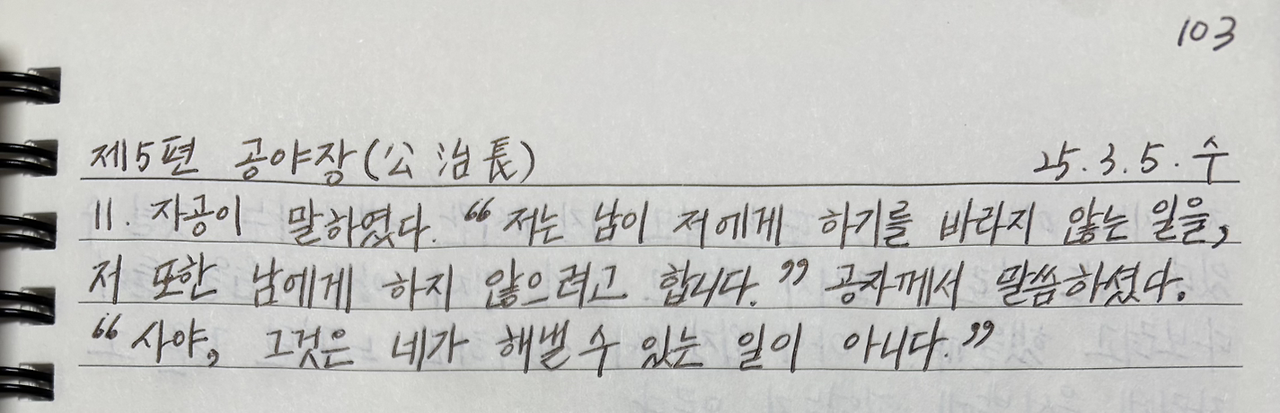 103
제5편 공야장(公治長) 25.3.5.수
11. 자공이 말하였다. “저는 남이 저에게 하기를 바라지 않는 일을,
저 또한 남에게 하지 않으려고 합니다.” 공자께서 말씀하셨다.
“사야, 그것은 네가 해낼 수 있는 일이 아니다.”